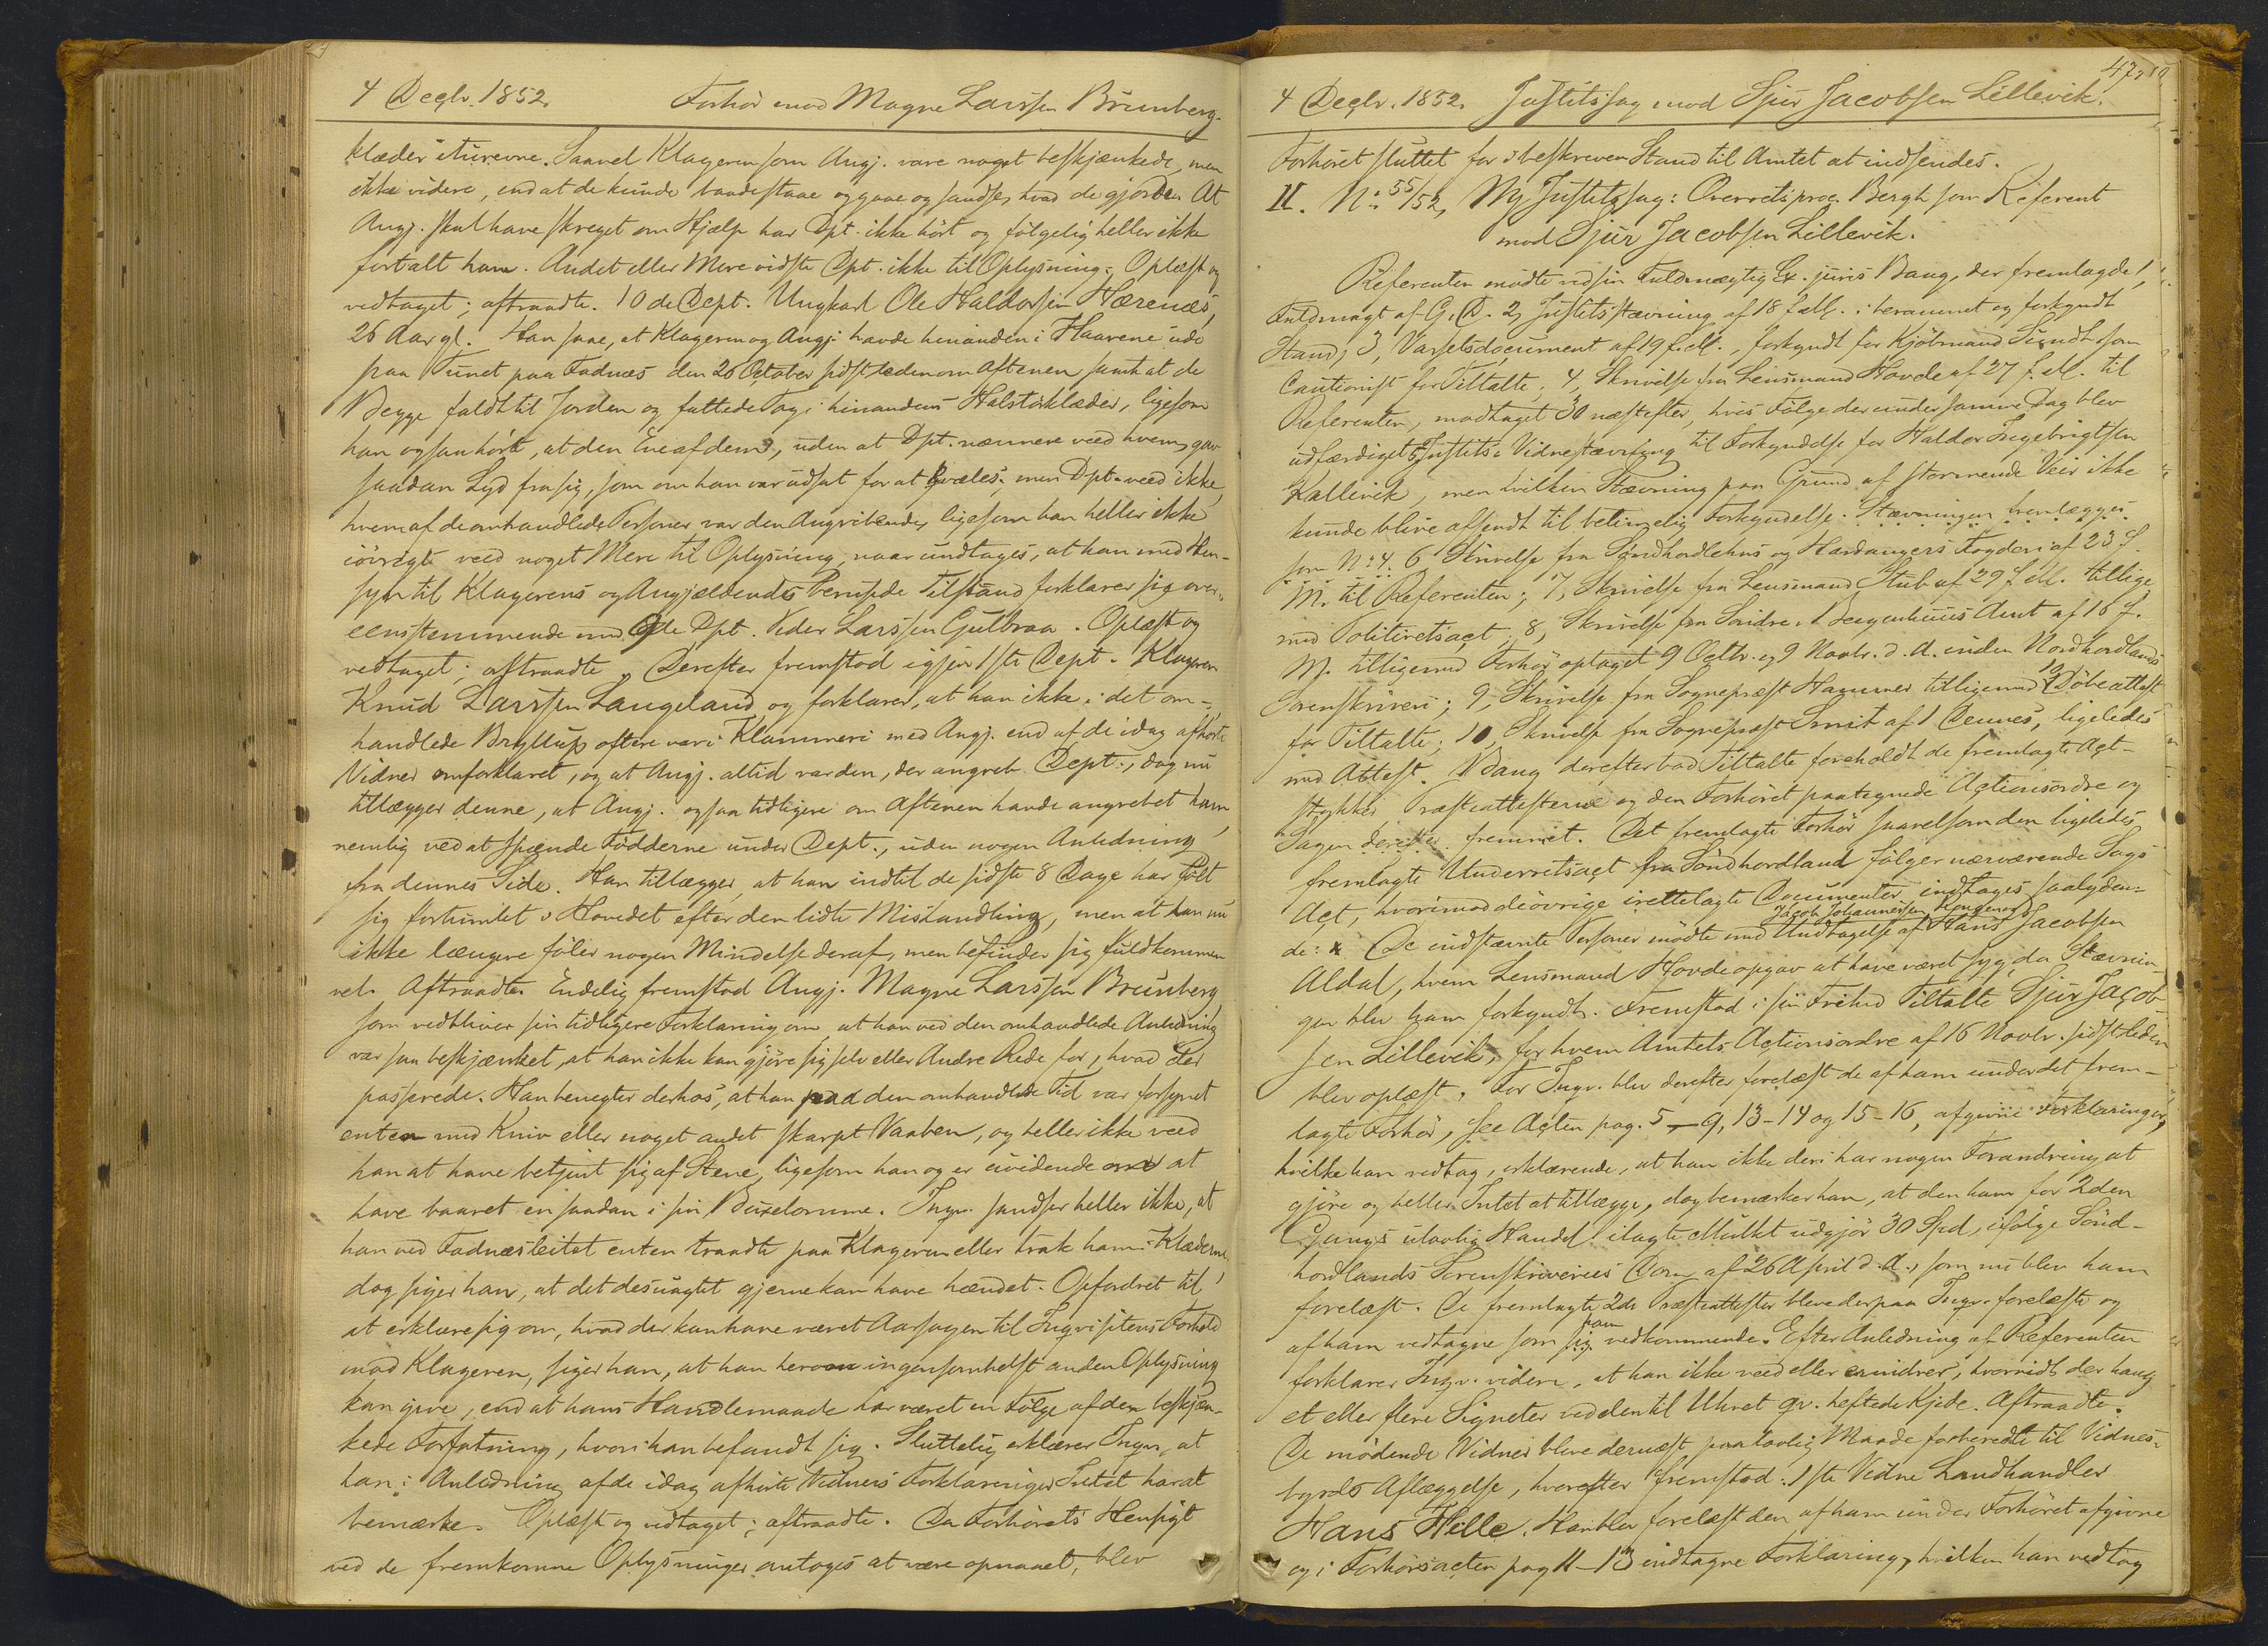 4 Decbr. 1852. Forhör mod Magne Larssen Brunberg.
klæder iturevne. Saavel Klageren som Angj. vare noget beskjænkede, men
ikke videre, end at de kunde baade staae og gaae og sandse, hvad de gjorde. At
Angj. skul have skreget om Hjælp har Dpt. ikke hört og fölgelig heller ikke
fortalt ham. Andet eller Mere vidste Dpt. ikke til Oplysning. Oplæst og
vedtaget; aftraadte. 10de Dept. Ungkarl Ole Haldorsen Hærenæs,
26 Aar gl. Han saae, at Klageren og Angj. havde hinanden i Haarene ude
paa Tunet paa Fadnæs den 26 October sidstleden om Aftenen samt at de
Begge faldt til Jorden og fattede Tag i hinandens Halstörklæder, ligesom
han ogsaa hört, at den Ene af dem, uden at Dpt. nærmere veed hvem, gav
saadan Lyd fra sig, som om han var udsat for at kvæles; men Dpt. veed ikke,
hvem af de omhandlede Personer var den Angribende, ligesom han heller ikke
iövrigt veed noget Mere til Oplysning, naar undtages, at han med Hen-
syn til Klagerens og Angjældendes berusede Tilstand forklarer sig over-
eensstemmende med 9de Dpt. Peder Larssen Gulbraa. Oplæst og
vedtaget; aftraadte. Derefter fremstod igjen 1ste Dept. Klageren
Knud Larssen Langeland og forklarer, at han ikke i det om-
handlede Bryllup oftere var i Klammeri med Angj. end af de idag afhörte
Vidner omforklaret, og at Angj. altid var den, der angreb Dept., dog nu
tillægger denne, at Angj. ogsaa tidligere om Aftenen havde angrebet ham,
nemlig ved at spænde Födderne under Dept., uden nogen Anledning
fra dennes Side. Han tillægger, at han indtil de sidste 8 Dage har fölt
sig fortumlet i Hovedet efter den lidte Mishandling, men at han nu
ikke længere föler nogen Mindelse deraf, men befinder sig fuldkommen
vel. Aftraadte. Endelig fremstod Angj. Magne Larssen Brunberg,
som vedbliver sin tidligere Forklaring om, at han ved den omhandlede Anledning
var saa beskjænket, at han ikke kan gjöre sig selv eller Andre Rede for, hvad der
passerede. Han benegter derhos, at han paa den omhandlede Tid var forsynet
enten med Kniv eller noget andet skarpt Vaaben, og heller ikke veed
han at have betjent sig af Stene, ligesom han og er uvidende om at
have baaret en saadan i sin Buxelomme. Inqv. sandser heller ikke, at
han ved Fadnæsleitet enten traadte paa Klageren eller trak ham i Klæderne,
dog siger han, at det desuagtet gjerne kan have hændet. Opfordret til
at erklære sig om, hvad der kan have været Aarsagen til Inqvisitens Forhold
mod Klageren, siger han, at han herom ingensomhelst anden Oplysning
kan give, end at hans Handlemaade har været en Fölge af den beskjæn-
kede Forfatning, hvori han befandt sig. Sluttelig erklærer Inqv., at
han i Anledning af de idag afhörte Vidners Forklaringer Intet har at
bemærke. Oplæst og vedtaget; aftraadte. Da Forhörets Hensigt
ved de fremkomne Oplysninger antoges at være opnaaet, blev
4 Decbr. 1852. Justitssag mod Sjur Jacobsen Lillevik.
Forhöret sluttet for i beskreven Stand til Amtet at indsendes.
II. No 55/52, Ny Justitssag: Overretsproc. Bergh som Referent
mod Sjur Jacobsen Lillevik.
Referenten mödte ved sin Fuldmægtig Ex. juris Baug, der fremlagde 1,
Fuldmagt af G. D. 2, Justitsstævning af 18 f. M. i berammet og forkyndt
Stand; 3, Varselsdocument af 19 f. M., forkyndt for Kjöbmand Sundt som
Cautionist for Tiltalte; 4, Skrivelse fra Lensmand Hovde af 27 f. M. til
Referenten, modtaget 30 næstefter, hvis Fölge der under samme Dag blev
udfærdiget Justits Vidnestævning til Forkyndelse for Haldor Ingebrigtsen
Kallevik, men hvilken Stævning paa Grund af stormende Veir ikke
kunde blive afsendt til betimelig Forkyndelse. Stævningen fremlægges
som No 4. 6 Skrivelse fra Söndhordlehns og Hardangers Fogderi af 23 f.
M. til Referenten; 7, Skrivelse fra Lensmand Stub af 29 f. M. tillige
med Politiretsact; 8, Skrivelse fra Söndre Bergenhuus Amt af 16 f.
M. tilligemed Forhör optaget 9 Octbr. og 9 Novbr. d. A. inden Nordhordlands
Sorenskriveri; 9, Skrivelse fra Sognepræst Hammer tilligemed Döbeattest
for Tiltalte; 10, Skrivelse fra Sognepræst Smit af 1 Dennes, ligeledes
med Attest. Baug derefter bad Tiltalte foreholdt de fremlagte Act-
stykker Præsteattesterne og den Forhöret paategnede Actionsordre og
Sagen derefter fremmet. Det fremlagte Forhör saavelsom den ligeledes
fremlagte Underretsact fra Söndhordland fölger nærværende Sags
Act, hvorimod de övrige irettelagte Documenter indtages saalyden-
de: x De indstævnte Personer mödte med Undtagelse af Jacob Johannessen Hougene og Hans Jacobsen
Aldal, hvem Lensmand Hovde opgav at have været syg, da Stævnin-
gen blev ham forkyndt. Fremstod i sin Frihed Tiltalte Sjur Jacob-
sen Lillevik, for hvem Amtets Actionsordre af 16 Novbr. sidstleden
blev oplæst. For Inqv. blev derefter forelæst de af ham under det frem-
lagte Forhör, see Acten pag. 5-9, 13-14 og 15-16, afgivne Forklaringer,
hvilke han vedtog, erklærende, at han ikke deri har nogen Forandring at
gjöre og heller Intet at tillægge, dog bemærker han, at den ham for 2den
Gangs ulovlig Handel ilagte Mulkt udgjör 30 Spd, ifölge Sönd-
hordlands Sorenskriveries Dom af 26 April d. A., som nu blev ham
forelæst. De fremlagte 2de Præsteattester bleve derpaa Inqv. forelæste og
af ham vedtagne som ham vedkommende. Efter Anledning af Referenten
forklarer Inqv. videre, at han ikke veed eller erindrer, hvorvidt der hang
et eller flere Signeter ved den til Uhret qv. heftede Kjede. Aftraadte.
De mödende Vidner bleve dernæst paa lovlig Maade forberedte til Vidnes-
byrds Aflæggelse, hvorefter fremstod: 1ste Vidne Landhandler
Hans Hille. Han blev forelæst den af ham under Forhöret afgivne
og i Forhörsacten pag 11-13 indtagne Forklaring, hvilken han vedtog